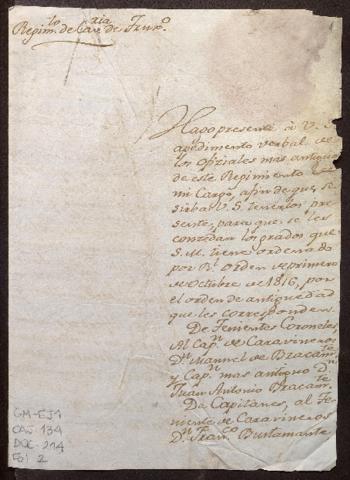 Regim.to de Cav.ria de Trux.o
Hago presente à V. S.
apedimento verbal de
los ofiziales mas antiguos
de este Regimiento
mi Cargo, afin de que, se
sirba V. S. tenerlos pre
sente, para que se les
concedan los grados que
S. M. tiene ordenado
por R.l Orden de primero
de Octubre de 1816, por
el orden de antiguedad
que les corresponden.
De Tenientes Coroneles,
Al Cap.n de Caravineros
D.n Manuel de Bracam.te
y Cap.n mas antiguo D.n
Juan Antonio Bracam.te
De Capitanes, al Te
niente de Caravineros
D.n Fran.co Bustamante
GM-EJ1
CAJ 134
DOC 214
Fol 2